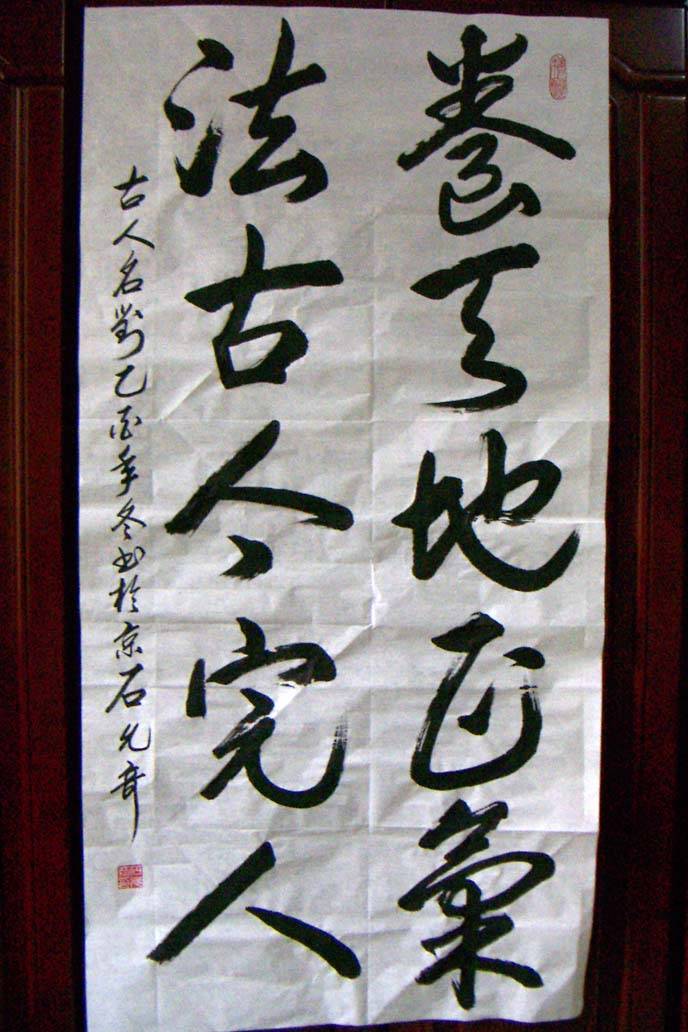 養天地正氣
法古今完人
古人名對乙酉年冬書於京石允奇